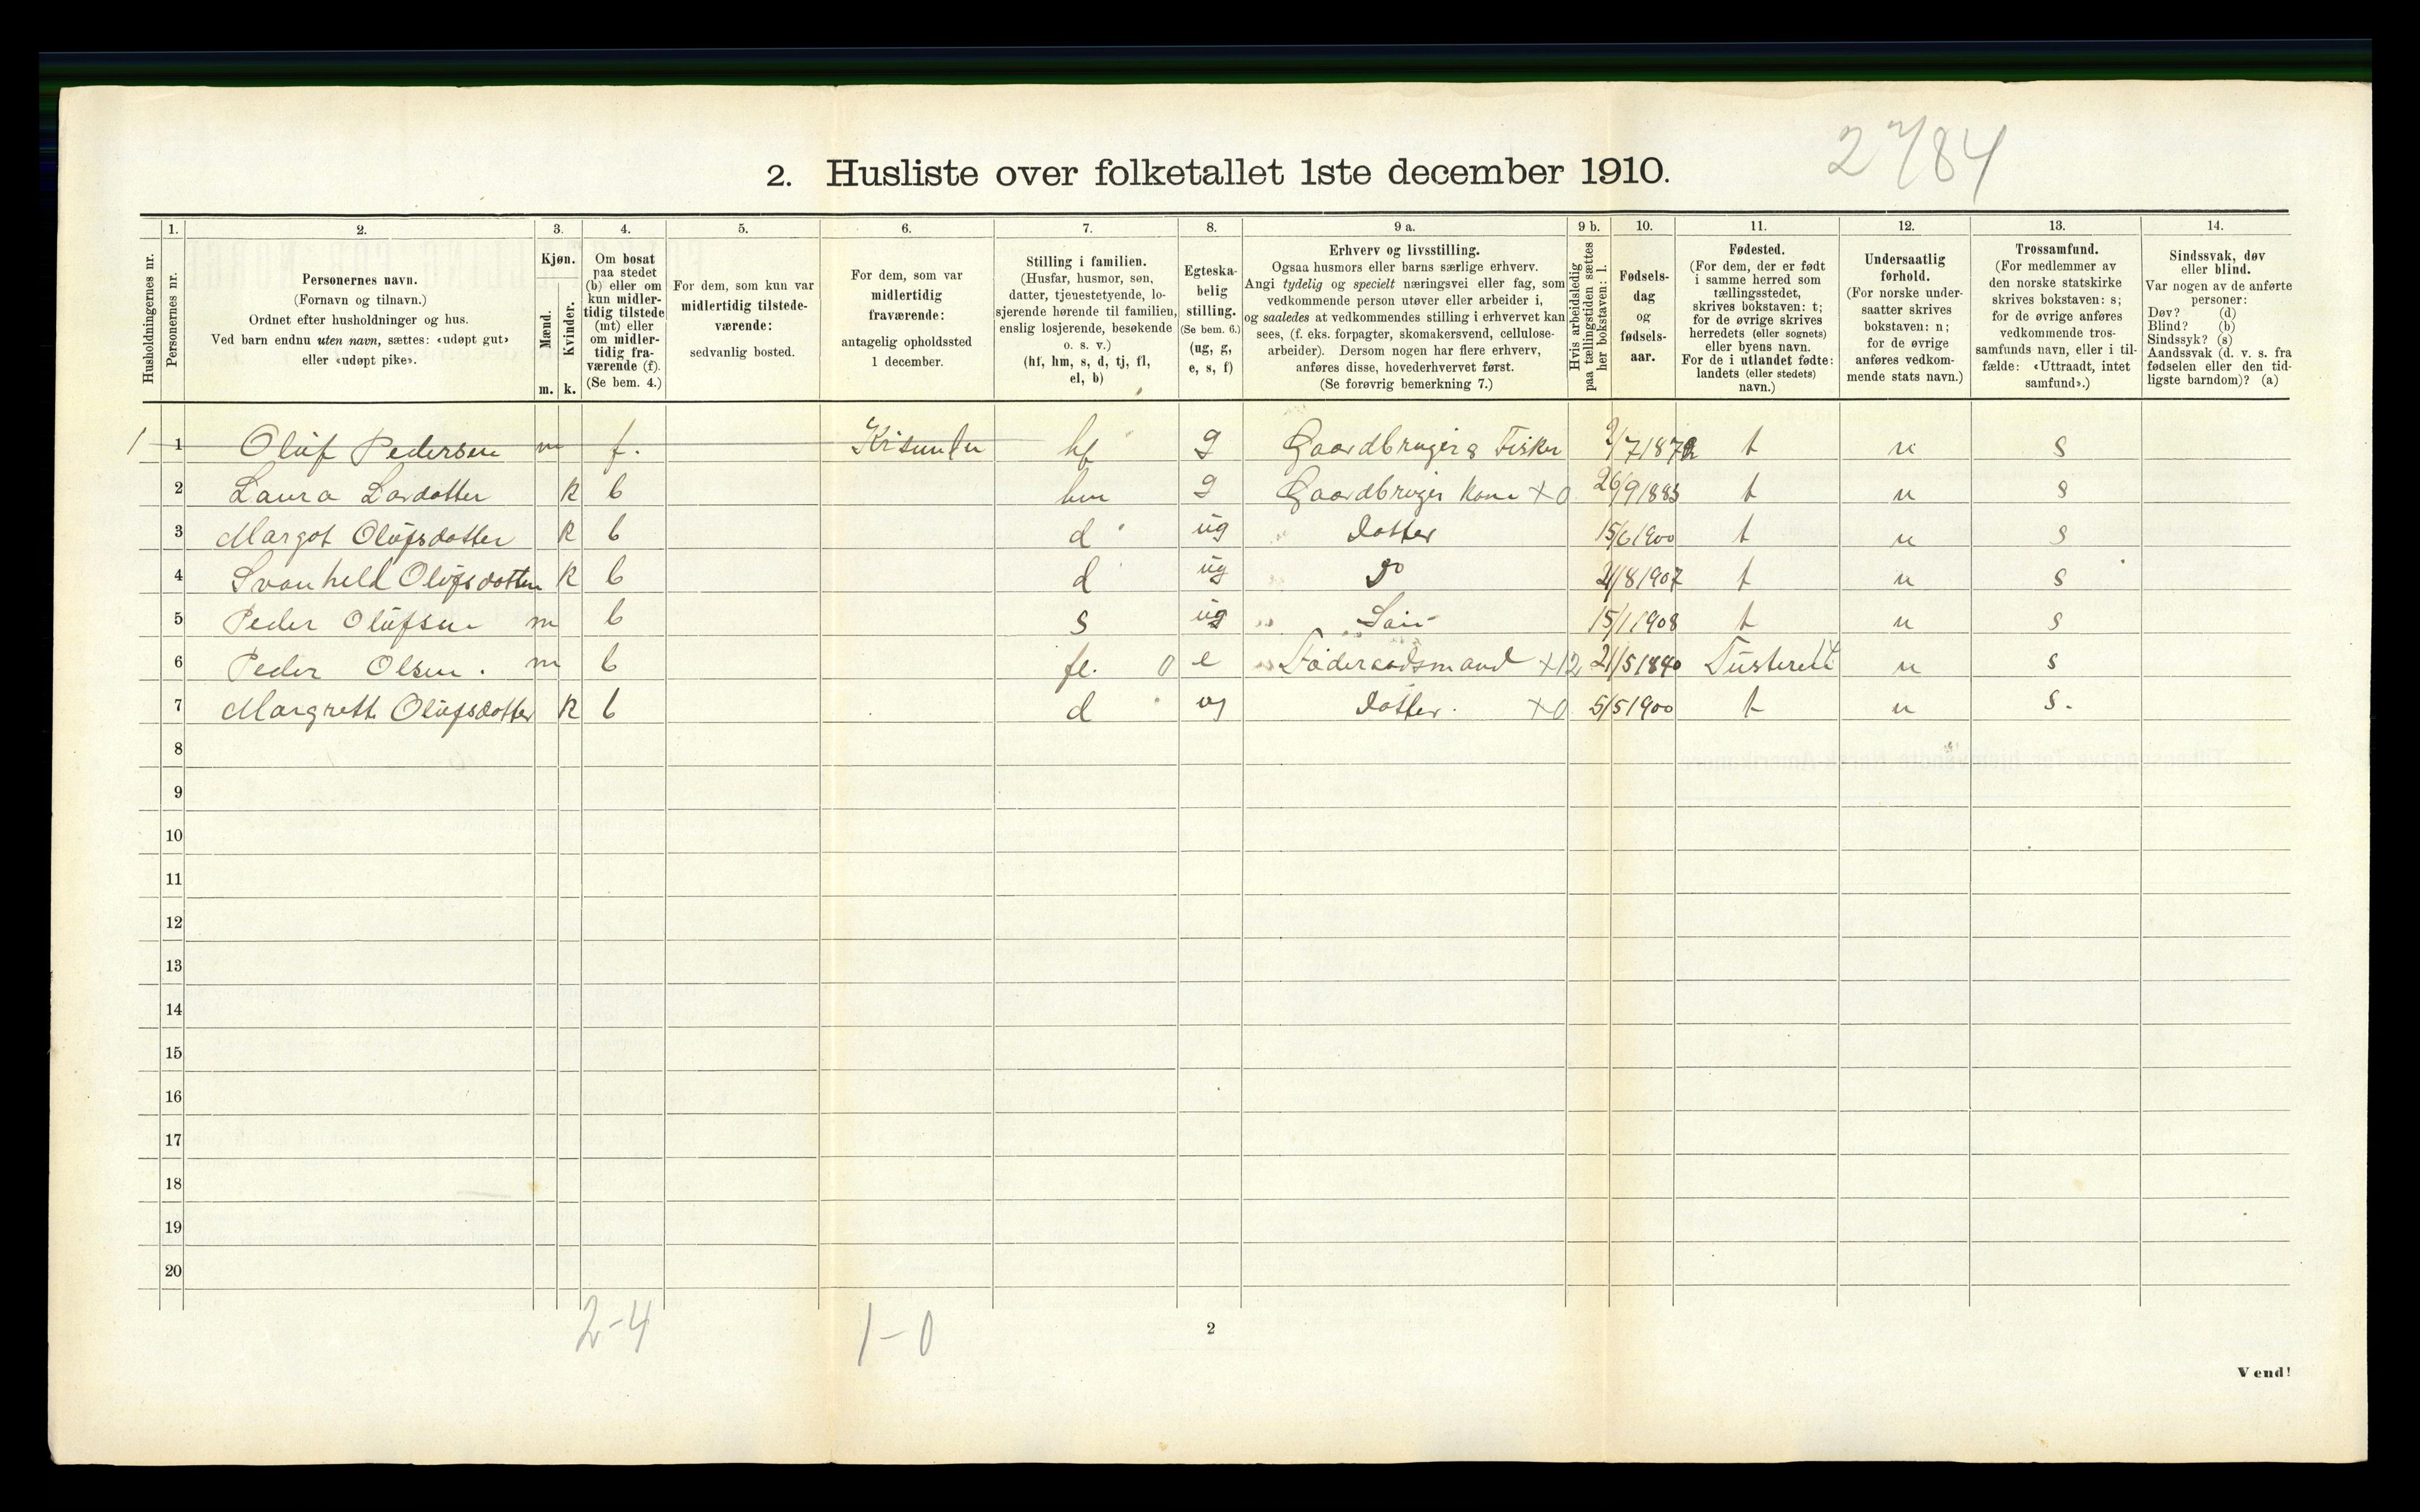 2 7/84
2. Husliste over folketallet 1ste december 1910.
Husholdningernes nr.
1.
Personernes nr.
2.
Personernes navn.
(Fornavn og tilnavn.)
Ordnet efter husholdninger og hus.
Ved barn endnu uten navn, sættes: «udøpt gut»
eller «udøpt pike».
3.
Kjøn.
Mænd.
Kvinder.
m. k.
4.
Om bosat
paa stedet
(b) eller om
kun midler-
tidig tilstede
(mt) eller
om midler-
tidig fra-
værende (f).
(Se bem. 4.)
5.
For dem, som kun var
midlertidig tilstede-
værende:
sedvanlig bosted.
6.
For dem, som var
midlertidig
fraværende:
antagelig opholdssted
1 december.
7.
Stilling i familien.
(Husfar, husmor, søn,
datter, tjenestetyende, lo-
sjerende hørende til familien,
enslig losjerende, besøkende
o. s. v.)
(hf, hm, s, d, tj, fl,
el, b)
8.
Egteska-
belig
stilling.
(Se bem. 6.)
(ug, g,
e, s, f)
9 a.
Erhverv og livsstilling.
Ogsaa husmors eller barns særlige erhverv.
Angi tydelig og specielt næringsvei eller fag, som
vedkommende person utøver eller arbeider i,
og saaledes at vedkommendes stilling i erhvervet kan
sees, (f. eks. forpagter, skomakersvend, cellulose-
arbeider). Dersom nogen har flere erhverv,
anføres disse, hovederhvervet først.
(Se forøvrig bemerkning 7.)
9 b.
Hvis arbeidsledig
paa tællingstiden sættes
her bokstaven: l.
10.
Fødsels-
dag
og
fødsels-
aar.
11.
Fødested.
(For dem, der er født
i samme herred som
tællingsstedet,
skrives bokstaven: t;
for de øvrige skrives
herredets (eller sognets)
eller byens navn.
For de i utlandet fødte:
landets (eller stedets)
navn.)
12.
Undersaatlig
forhold.
(For norske under-
saatter skrives
bokstaven: n;
for de øvrige
anføres vedkom-
mende stats navn.)
13.
Trossamfund.
(For medlemmer av
den norske statskirke
skrives bokstaven: s;
for de øvrige anføres
vedkommende tros-
samfunds navn, eller i til-
fælde: «Uttraadt, intet
samfund».)
14.
Sindssvak, døv
eller blind.
Var nogen av de anførte
personer:
Døv? (d)
Blind? (b)
Sindssyk? (s)
Aandssvak (d. v. s. fra
fødselen eller den tid-
ligste barndom)? (a)
1 1 Oluf Pedersen m f. Krisundu hf g Gaardbruger & Fisker 2/7 1872 t n s
2 Laura Lardatter k b hm g Gaardbruger Kone +0 26/9 1883 t n s
3 Margot Olufsdatter k b d ug Datter 15/6 1900 t n s
4 Svanheld Olufsdatter k b d ug Do 21/8 1907 t n s
5 Peder Olufsen m b s ug Søn 15/1 1908 t n s
6 Peder Olsen. m b fl. 0 e Føderaadsmand +12 21/5 1840 n s
7 Margrethe Olufsdatter k b d ug Datter. +0 5/5 1900 t n s.
8
9
10
11
12
13
14
15
16
17
18
19
20
2-4 1-0
2
Vend!